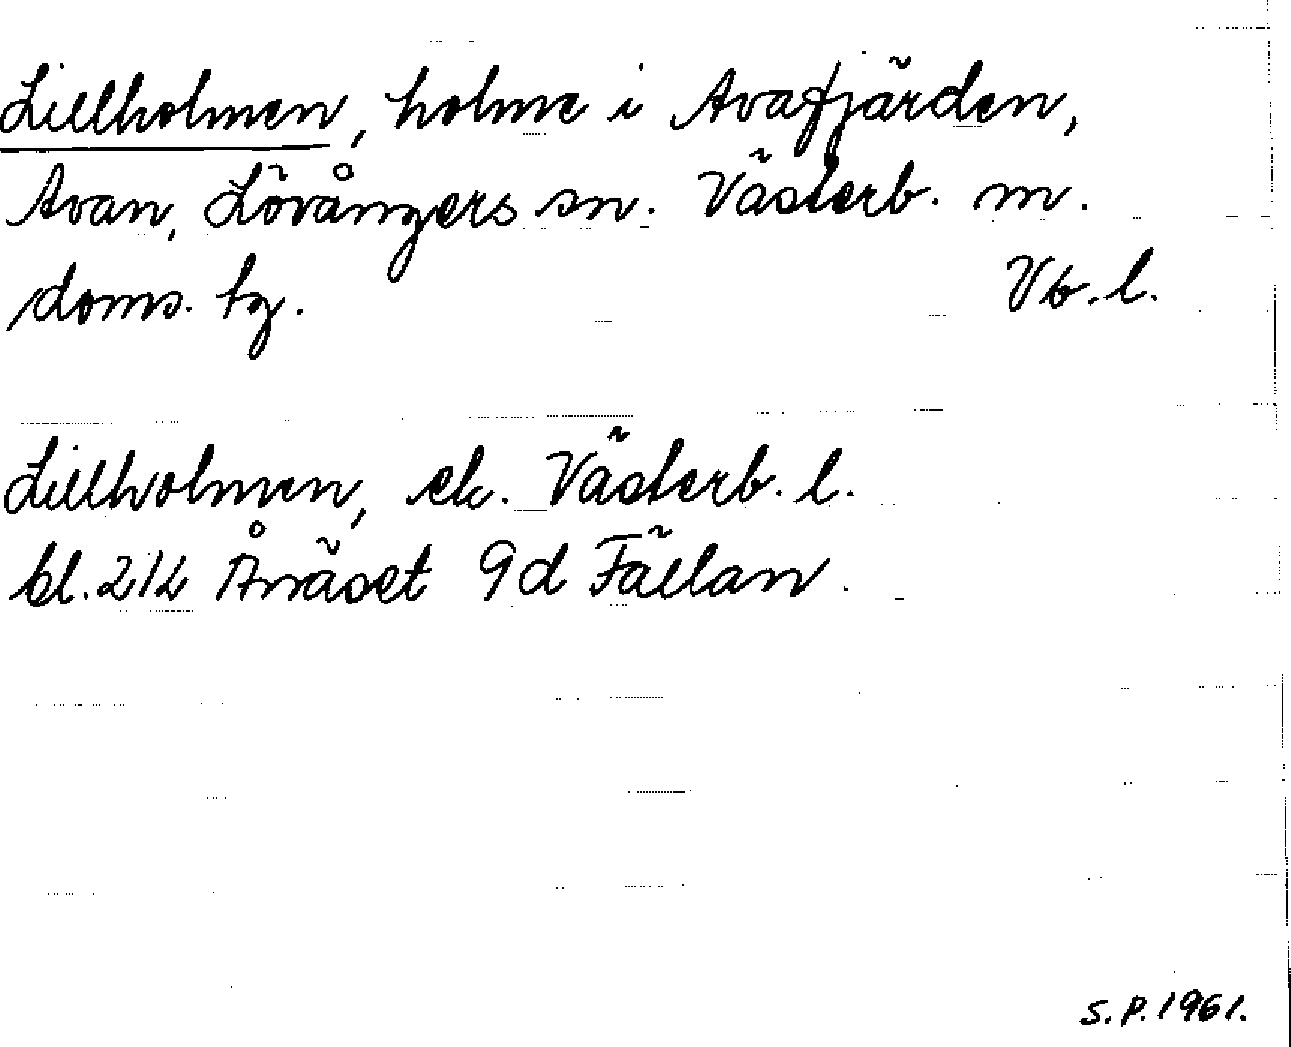 Lillholmen, holme i Avafjärden,
Avan, Lövångers sn. Västerb. m.
doms. tg. Vb. l.
Lillholmen, ek. Västerb. l.
bl. 212 Ånäset 9d Fällan.
S.P. 1961.